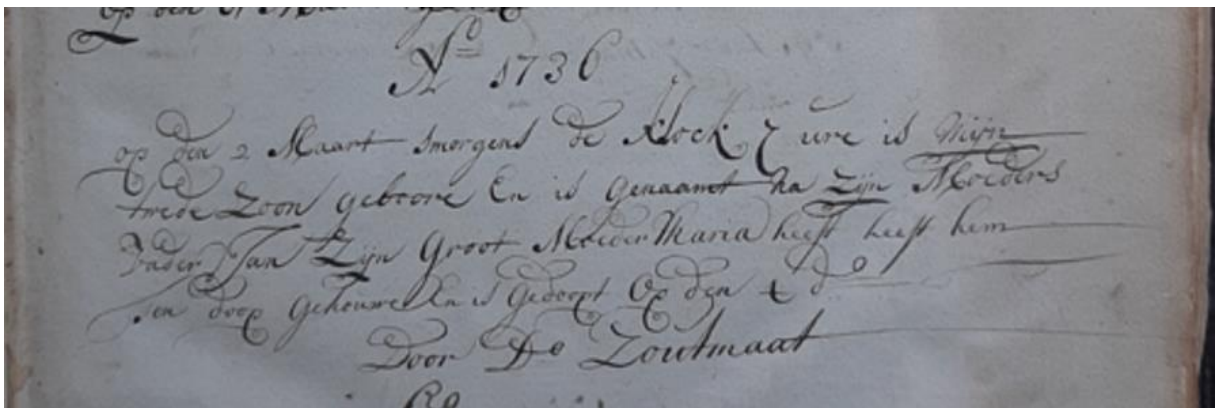 op den
Ao 1736
op den 2 Maart smorgens de Klock 7 ure is Mijn
twede Zoon geboore En is Genaamt na Zijn Moeders
Vader Jan Zijn Groot Moeder Maria heeft heeft hem
ten doop Gehouwe En is Gedoopt Op den 4 do
Door Do Zoutmaat